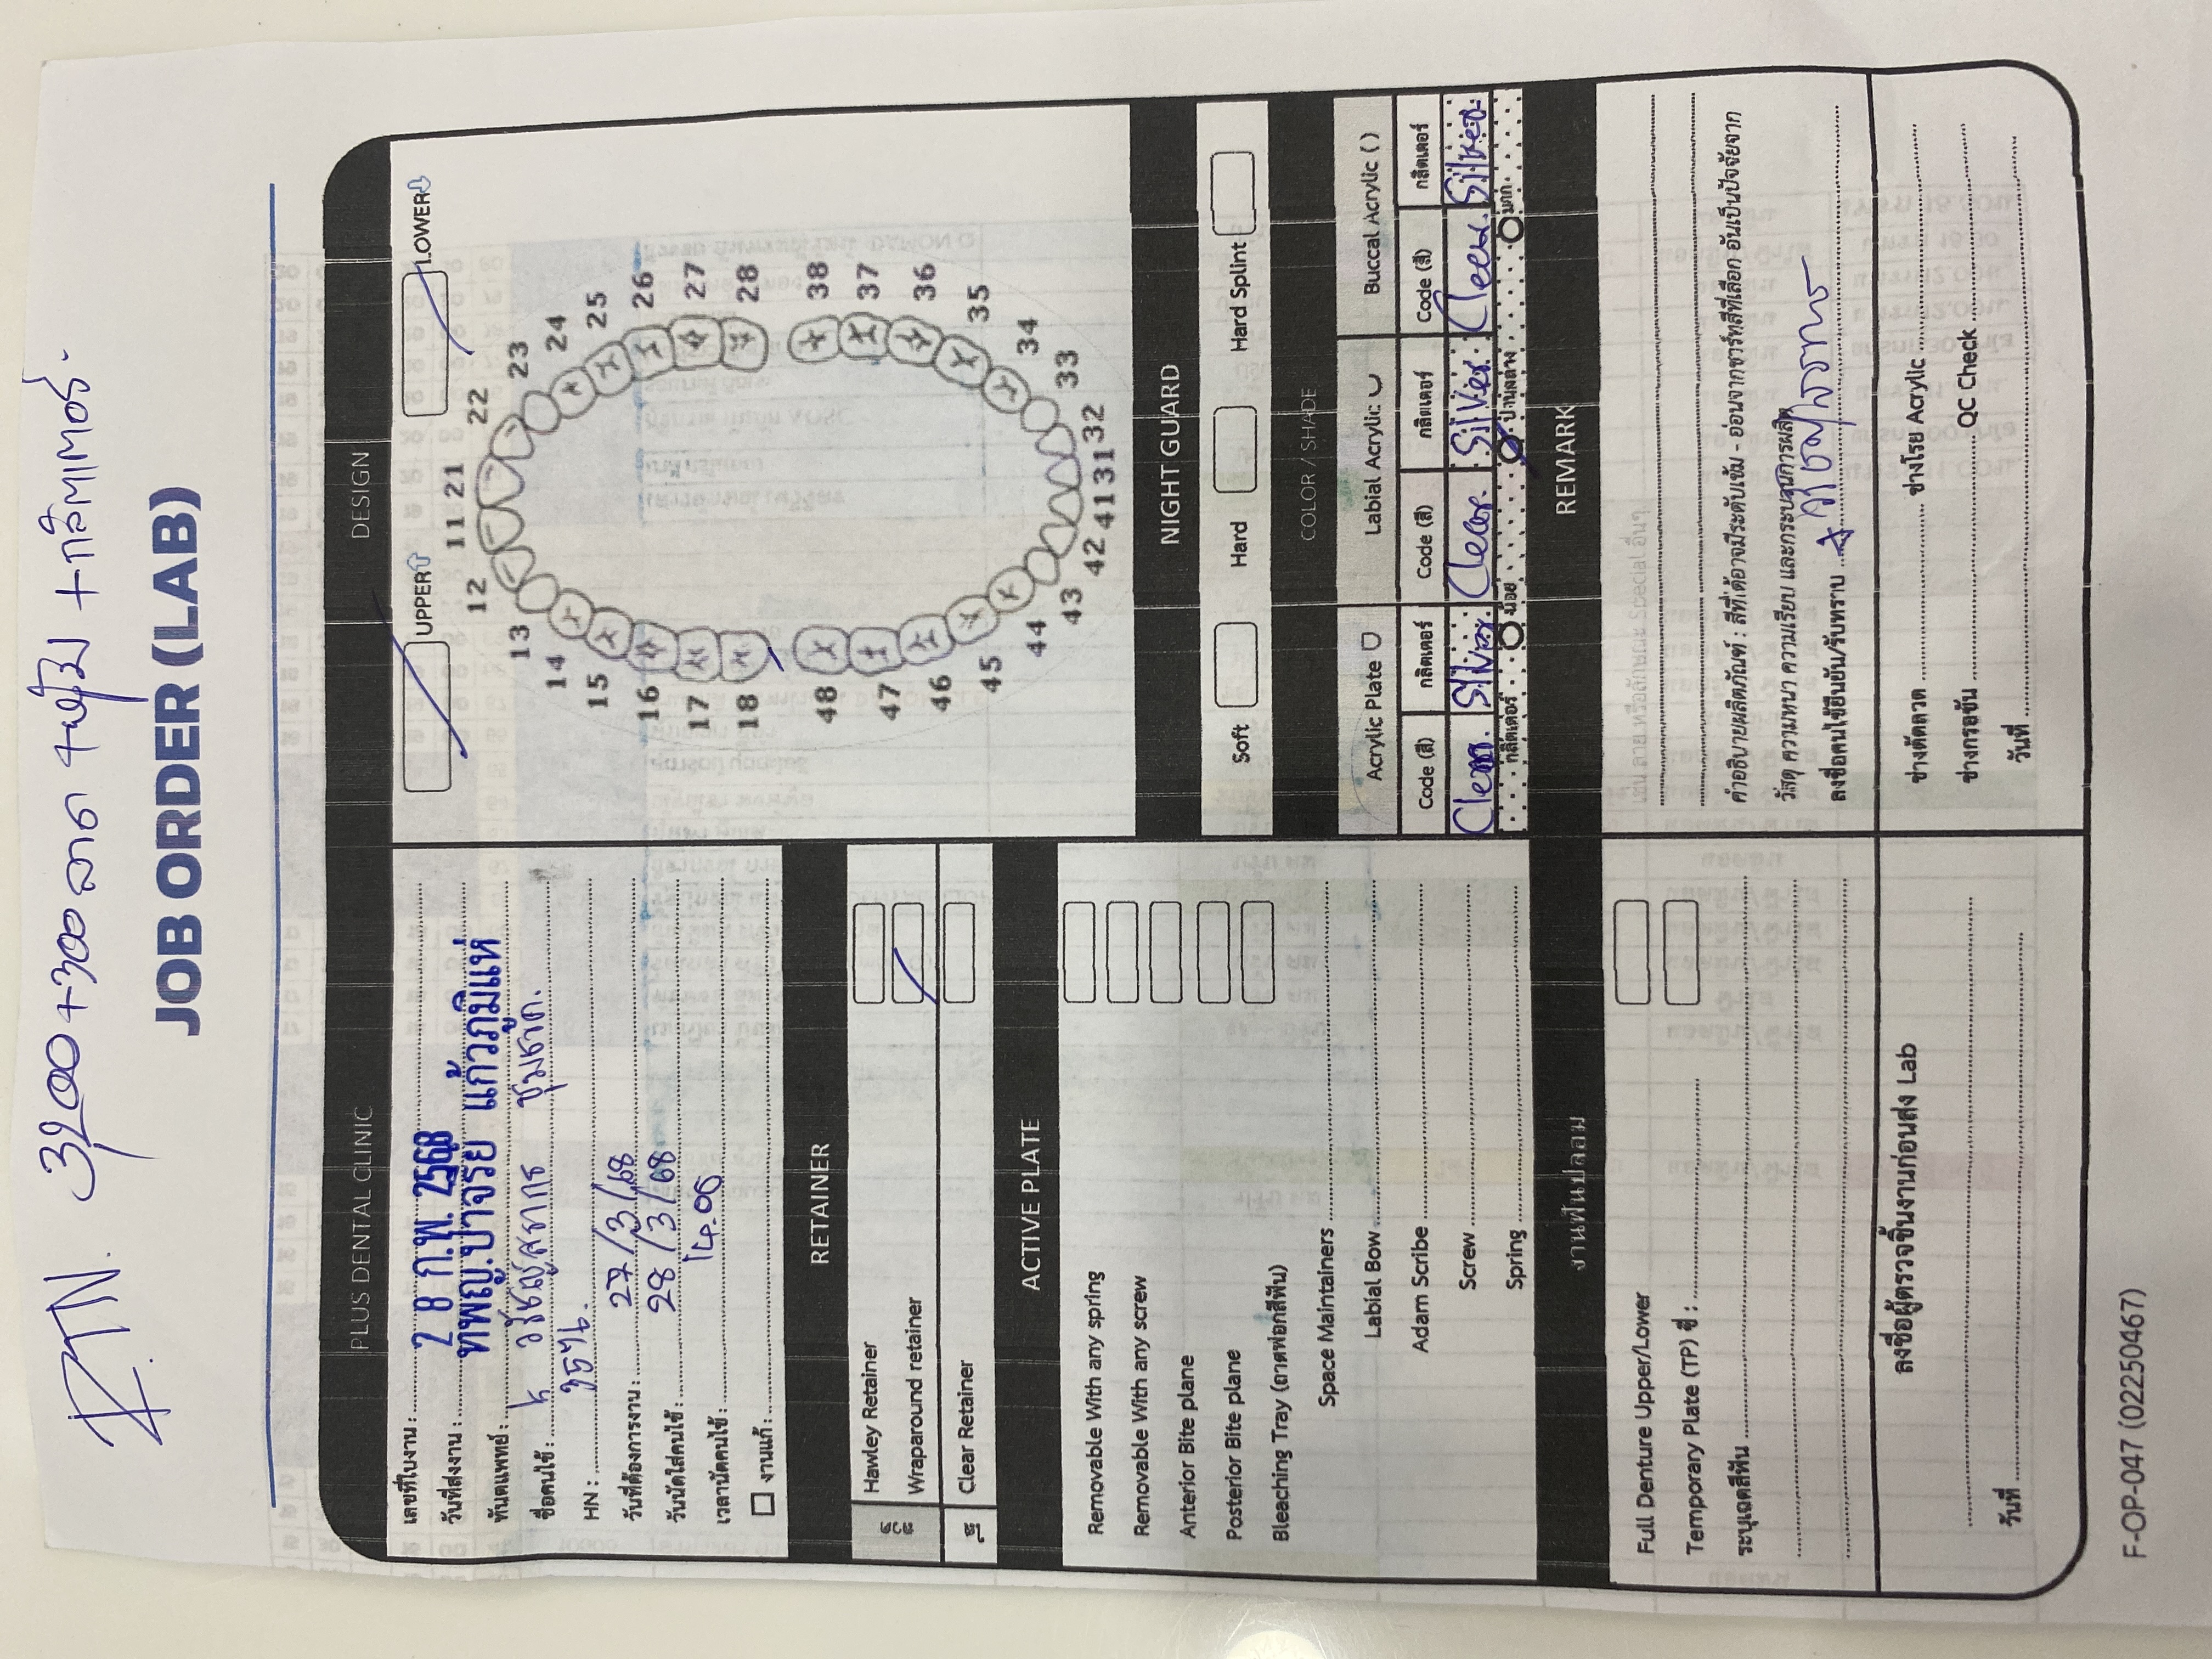 RTN. 3200+300 ลาด +หุ้ม +กลิตเตอร์.
JOB ORDER (LAB)
PLUS DENTAL CLINIC
เลขที่ใบงาน :
วันที่ส่งงาน : 28 ก.พ. 2568
ทันตแพทย์ : ทพญ.ปาจรีย์ แก้วภูมิแห่
ชื่อคนไข้ : ชุมชาด.
HN :
วันที่ต้องการงาน : 27/3/68
วันนัดใส่คนไข้ : 28/3/68
เวลานัดคนไข้ : 14.00
งานแก้ :
RETAINER
ลวด
Hawley Retainer
Wraparound retainer
ใส
Clear Retainer
ACTIVE PLATE
Removable With any spring
Removable With any screw
Anterior Bite plane
Posterior Bite plane
Bleaching Tray (ถาดฟอกสีฟัน)
Space Maintainers
Labial Bow
Adam Scribe
Screw
Spring
งานฟันปลอม
Full Denture Upper/Lower
Temporary Plate (TP) ซี่ :
ระบุเฉดสีฟัน
ลงชื่อผู้ตรวจชิ้นงานก่อนส่ง Lab
วันที่
DESIGN
UPPER LOWER
12 11 21 22
13 23
14 24
15 25
16 26
17 27
18 28
48 38
47 37
46 36
45 35
44 34
43 33
42 41 31 32
NIGHT GUARD
Soft Hard Hard Splint
COLOR / SHADE
Acrylic Plate Labial Acrylic Buccal Acrylic ( )
Code (สี) กลิตเตอร์ Code (สี) กลิตเตอร์ Code (สี) กลิตเตอร์
Clear. Silver Clear. Silver. Clear. Silver.
กลิตเตอร์ น้อย ปานกลาง มาก
REMARK
เช่น ลาย หรือลักษณะ Special อื่นๆ
คำอธิบายผลิตภัณฑ์ : สีที่ได้อาจมีระดับเข้ม - อ่อนจากชาร์ทสีที่เลือก อันเป็นปัจจัยจาก
วัสดุ ความหนา ความเรียบ และกระบวนการผลิต
ลงชื่อคนไข้ยืนยัน/รับทราบ
ช่างดัดลวด ช่างโรย Acrylic
ช่างกรอขัน QC Check
วันที่
F-OP-047 (02250467)